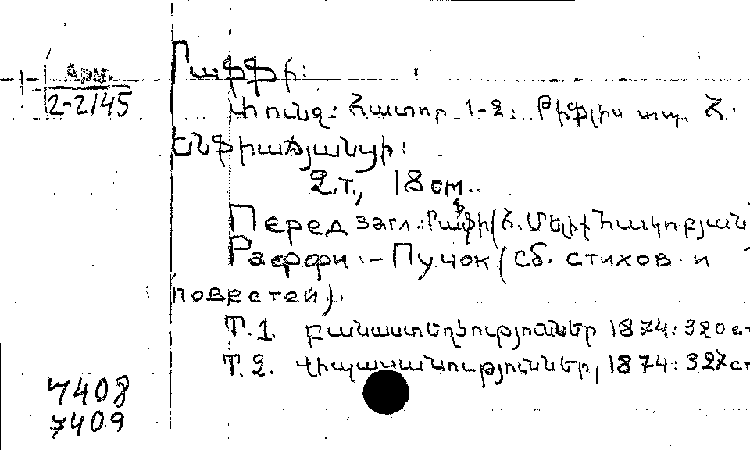 Րաֆֆի:
Арм.
2-2145
Փունջ: Հատոր 1-2: Թիֆլիս տպ. Հ.
Էնֆիաճյանցի:
2.т., 18см.
Перед загл.: Րաֆֆի (Հ. Մելիք Հակոբյան
Раффи. – Пучок (сб. стихов и
повестей).
Т.1. Բանաստեղծություններ 1874: 320
Т.2. Վիպասանություններ, 1874: 327
7408
7409